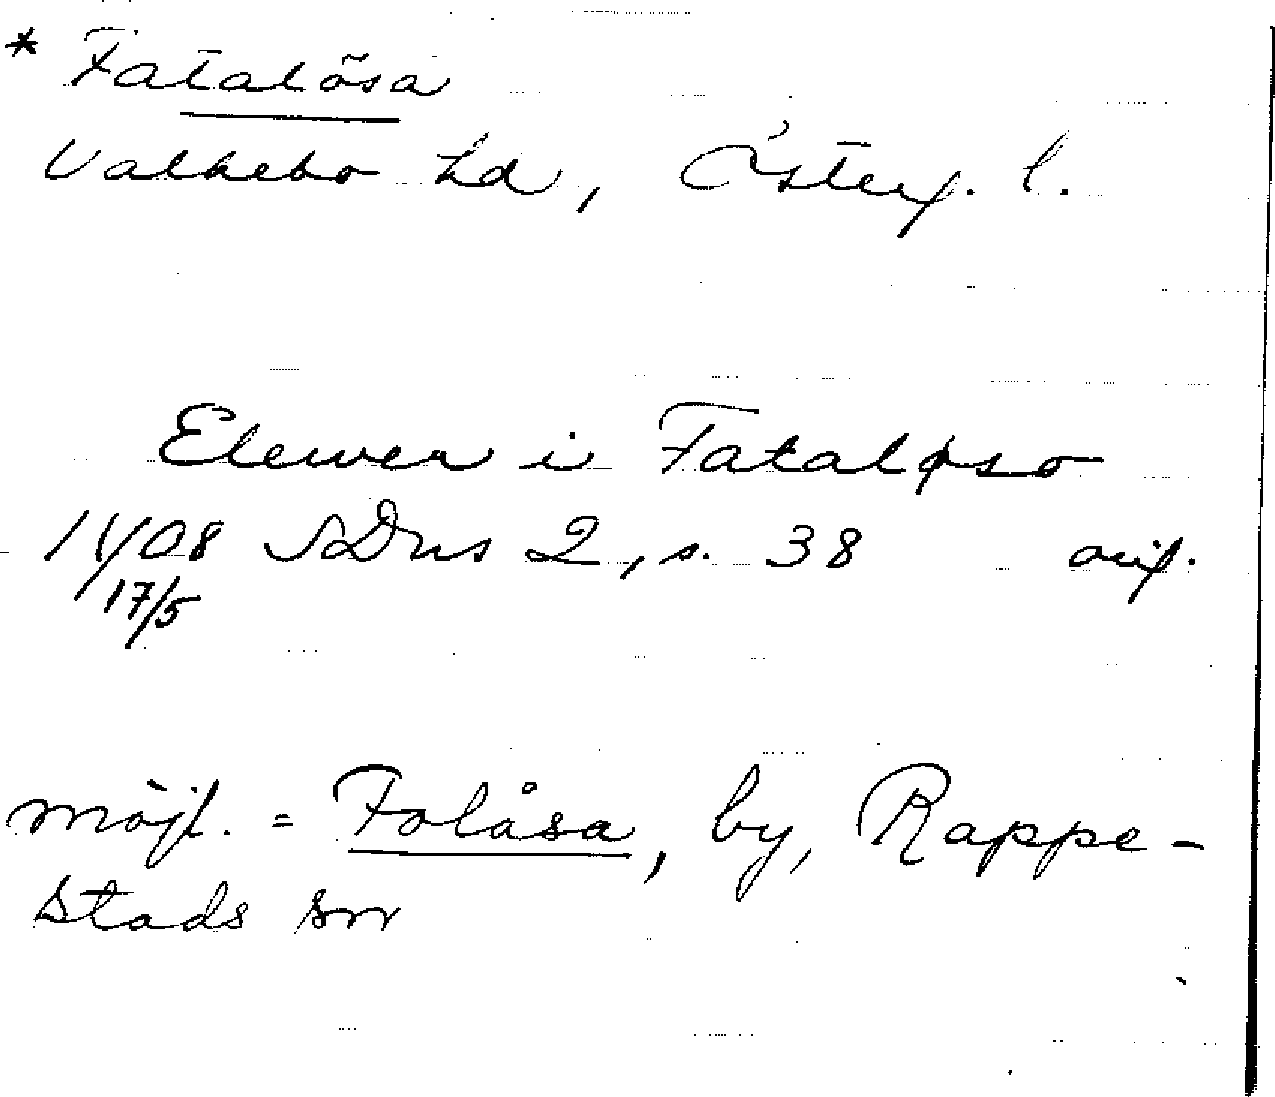 * Fatalösa
Valkebo hd, Österg. l.
Elewer i Fataløso
1408 SDns 2, s. 38 orig.
17/5
möjl. = Folåsa, by, Rappe-
stads sn